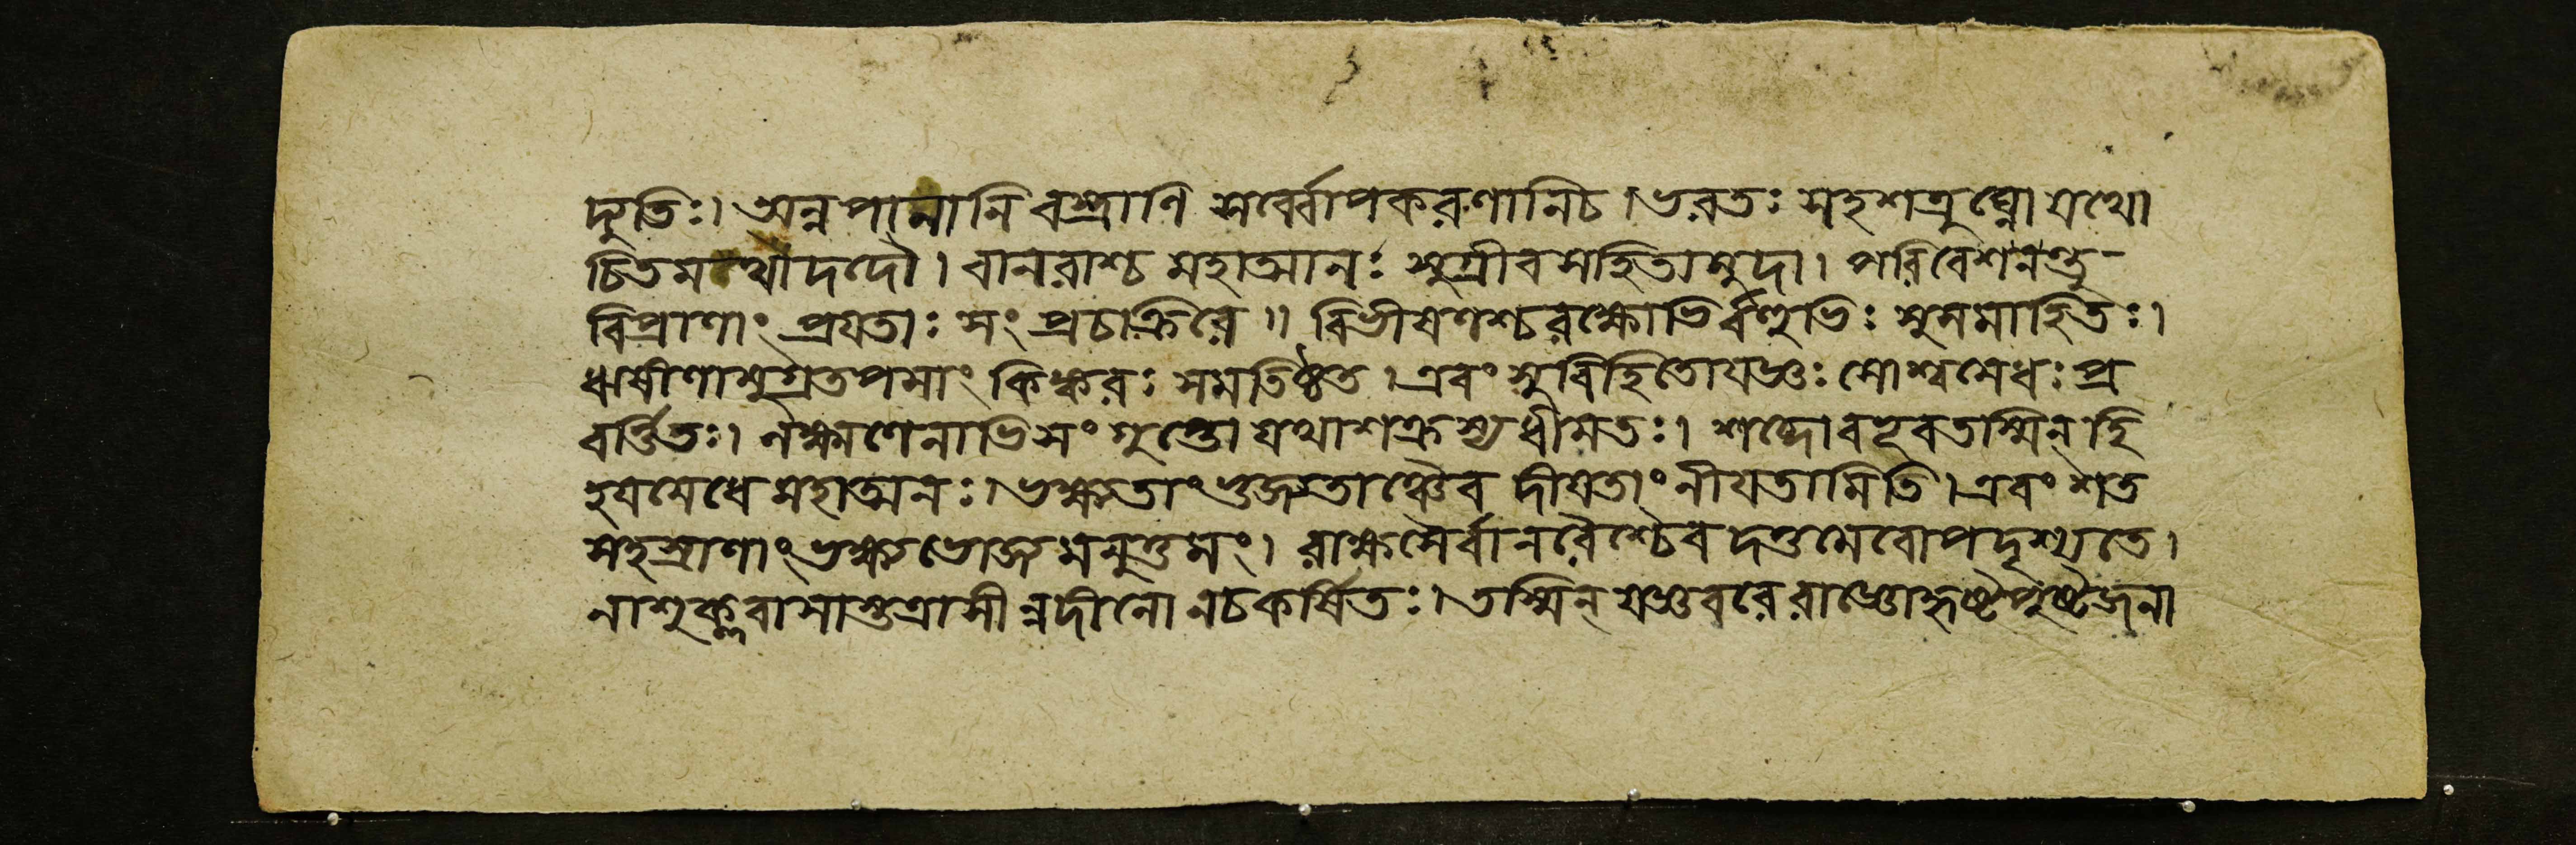 দ্যুতিঃ। অন্নপানানি বস্ত্রাণি সর্ব্বোপকরণানিচ। ভরতঃ সহশত্রুঘ্নো যথো
চিতমথো দদৌ। বানরাশ্চ মহাত্মানঃ সুগ্রীবসহিতামুদা। পরিবেশনন্তু
বিপ্রাণাং প্রযতাঃ সং প্রচাক্রিরে॥ বিভীষণশ্চ রক্ষোভির্বহুভিঃ সুসমাহিতঃ।
ঋষীণামুগ্রতপসাং কিঙ্করঃ সমতিষ্ঠত। এবং সুবিহিতোযজ্ঞঃ সোশ্বমেধঃ প্র
বর্ত্তিতঃ। লক্ষ্মণেনাভিসংগুপ্তো যথাশক্রস্যধীমতঃ। শব্দোবহূবতস্মিন্ হি
হযমেধে মহাত্মনঃ। ভক্ষ্যতাং ভুজ্যতাঞ্চৈব দীযতাং নীযতামিতি। এবং শত
সহস্রাণাং ভক্ষ্যভোজ্যমনুত্তমং। রাক্ষসৈর্বানরৈশ্চৈব দত্তমেবোপদৃশ্যতে।
নাশুক্লবাসাস্তত্রাসীন্নদীনো নচকর্ষিতঃ। তস্মিন্ যজ্ঞবরে রাজ্ঞোহৃষ্টপুষ্টজনা